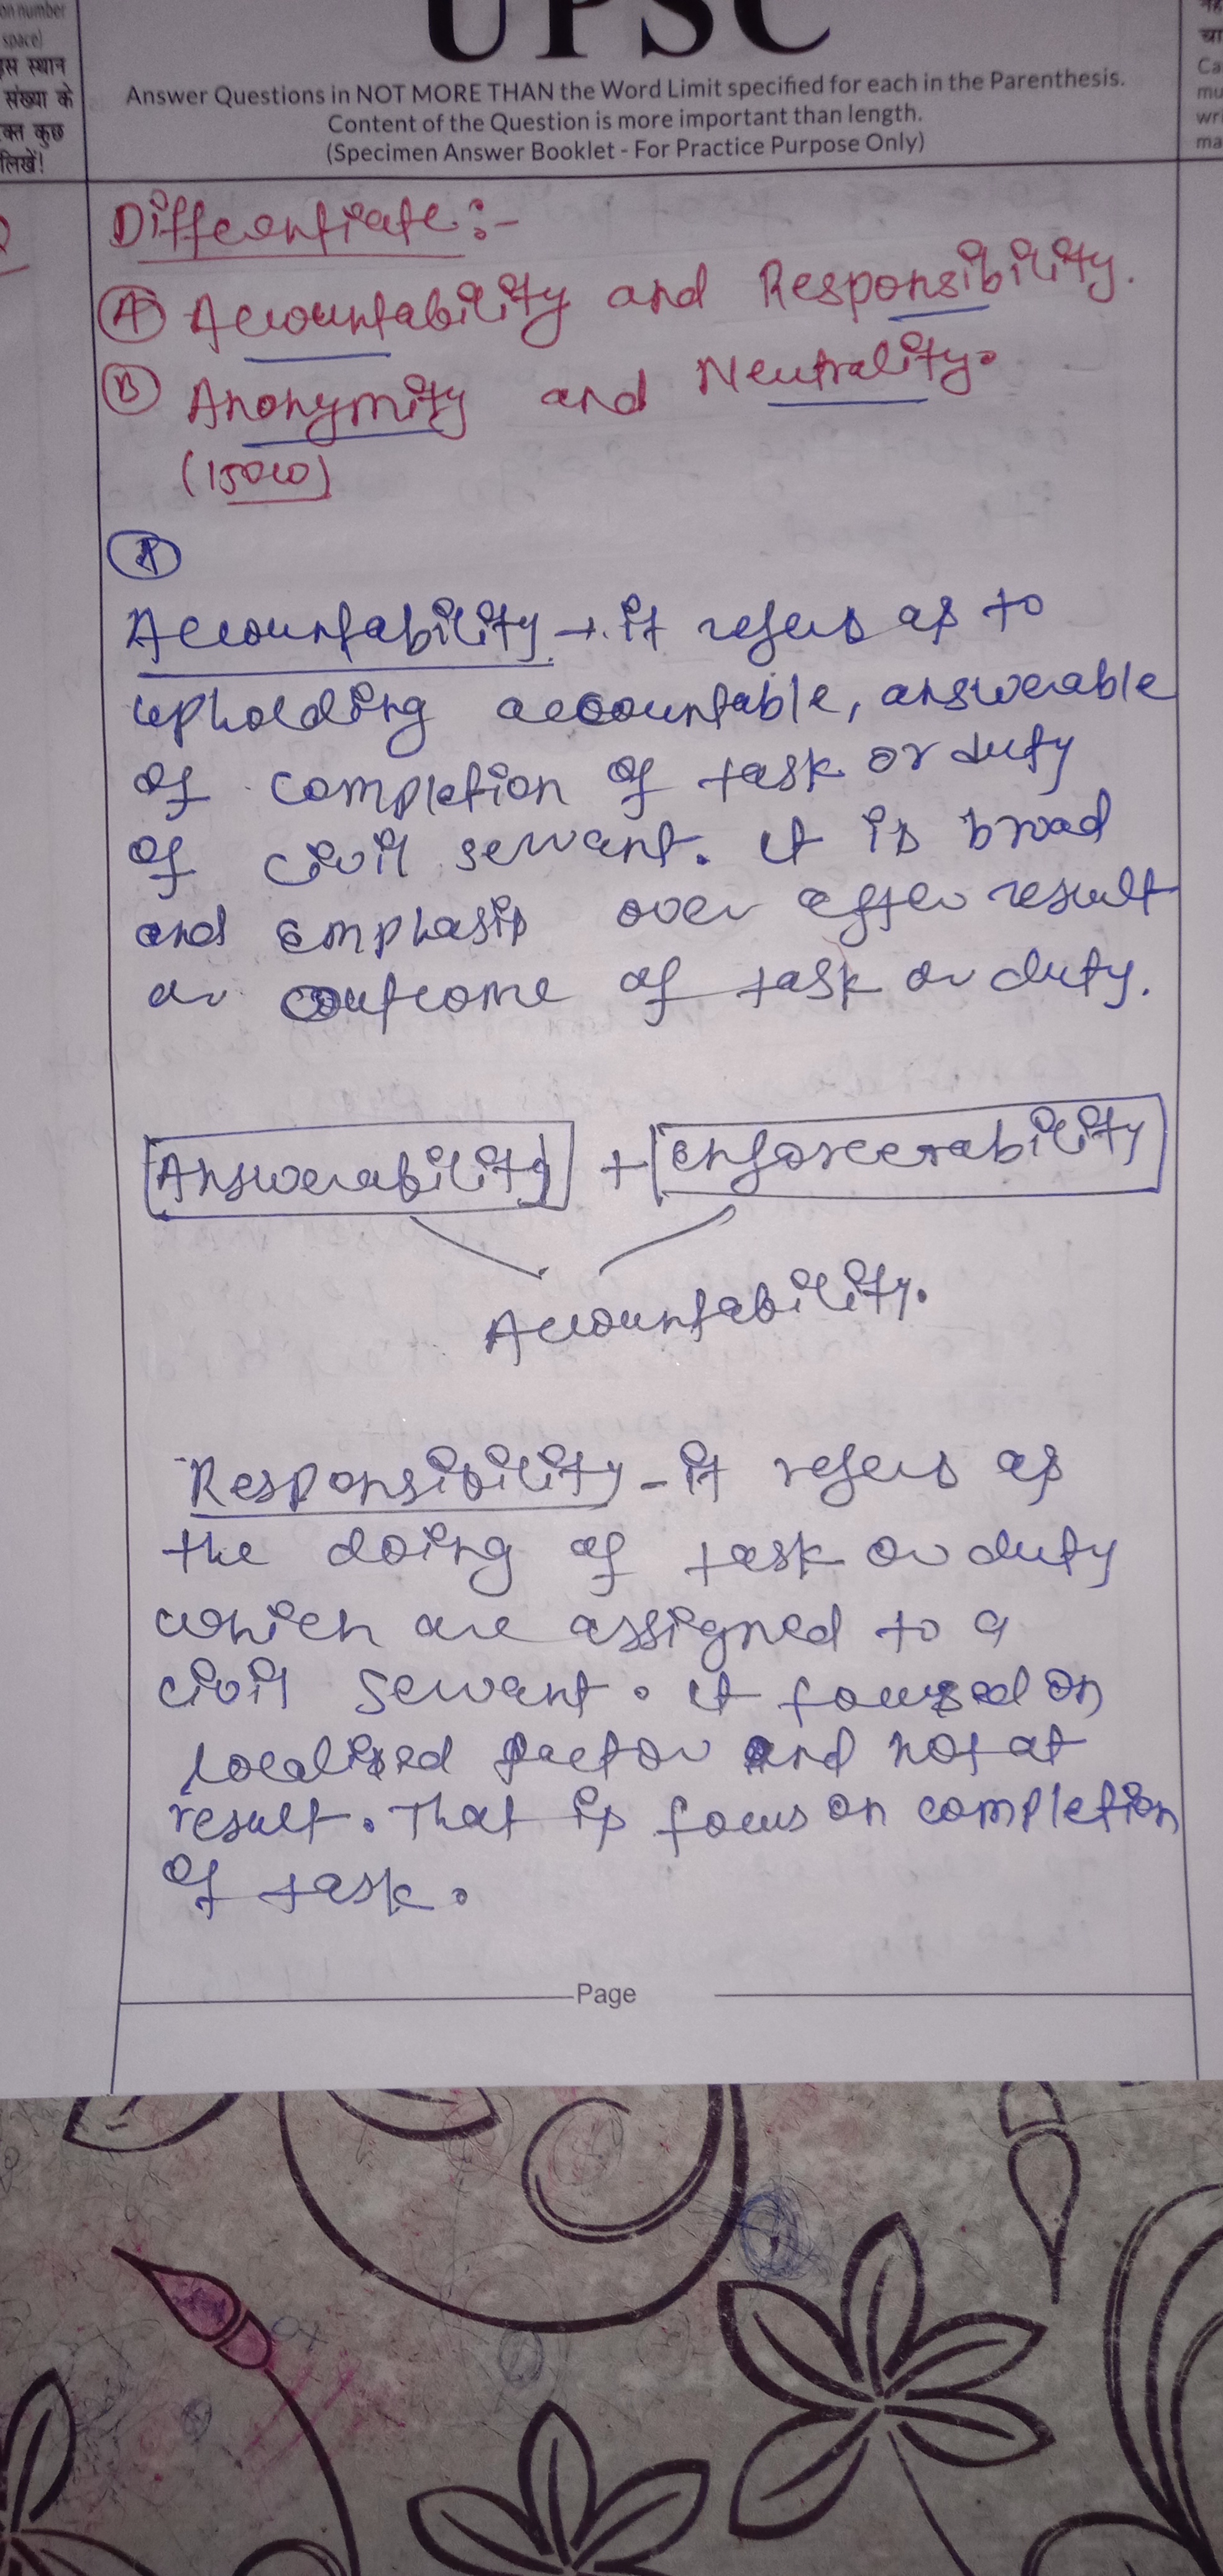 on number
space)
इस स्थान
संख्या के
लिखें!
UPSC
Answer Questions in NOT MORE THAN the Word Limit specified for each in the Parenthesis.
Content of the Question is more important than length.
(Specimen Answer Booklet - For Practice Purpose Only)
Differentiate:-
(A) Accountability and Responsibility.
(B) Anonymity and Neutrality.
(150W)
(A)
Accountability → it refers as to
upholding accountable, answerable
of completion of task or duty
of civil servant. it is broad
and emphasis over after result
or outcome of task or duty.
Answerability + enforcerability
Accountability.
Responsibility - it refers as
the doing of task or duty
which are assigned to a
civil servant. it focused on
localised factor and not at
result. That is focus on completion
of task.
Page